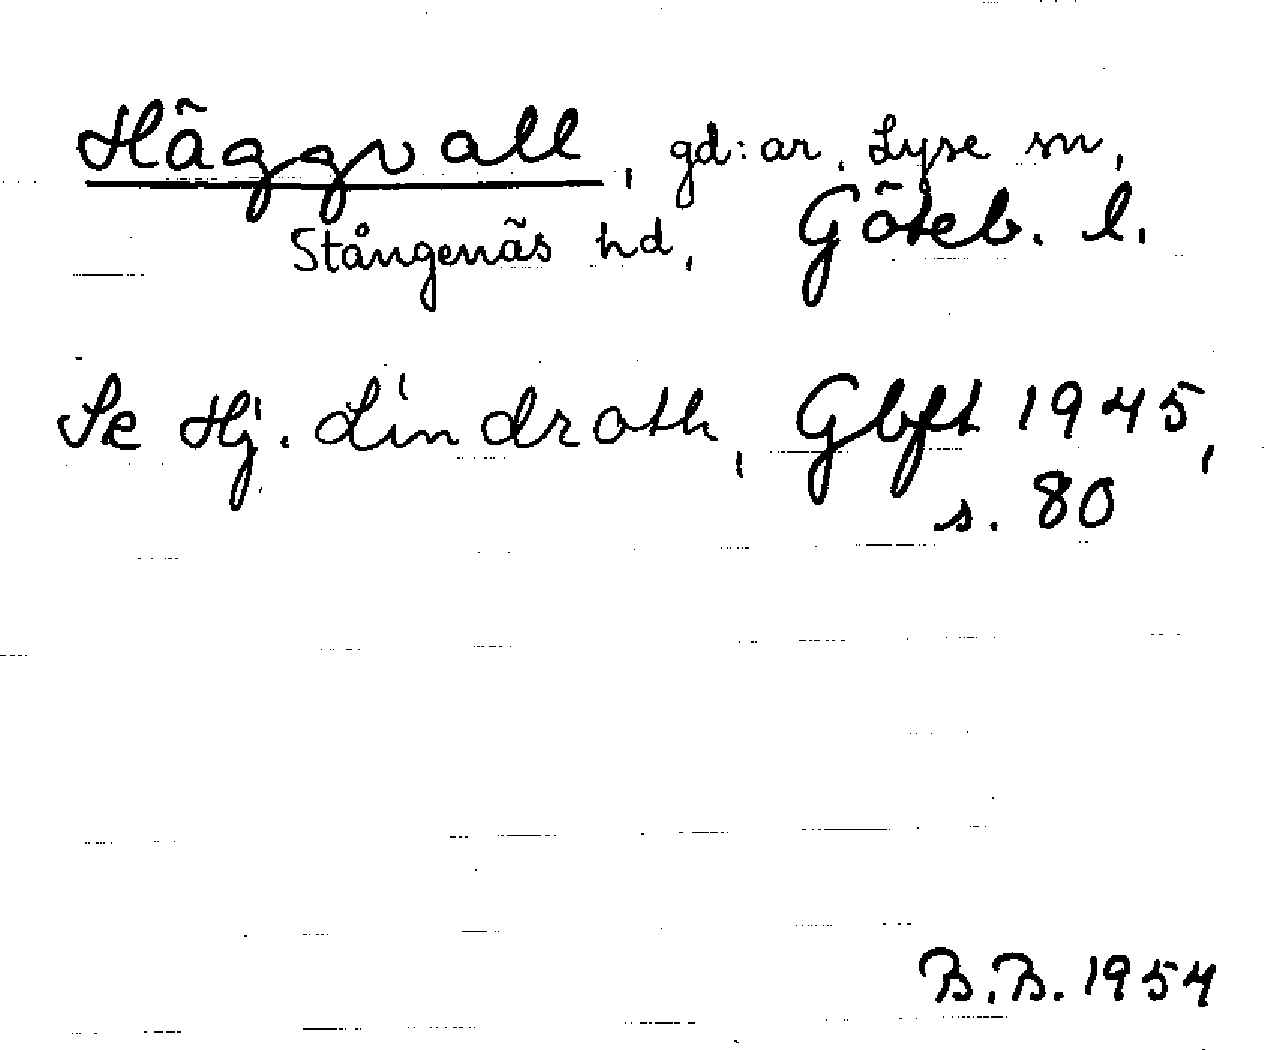 Häggvall, gd:ar, Lyse sn,
Stångenäs hd, Göteb. l.
Se Hj. Lindroth, Gbft 1945,
s. 80
B.B. 1954